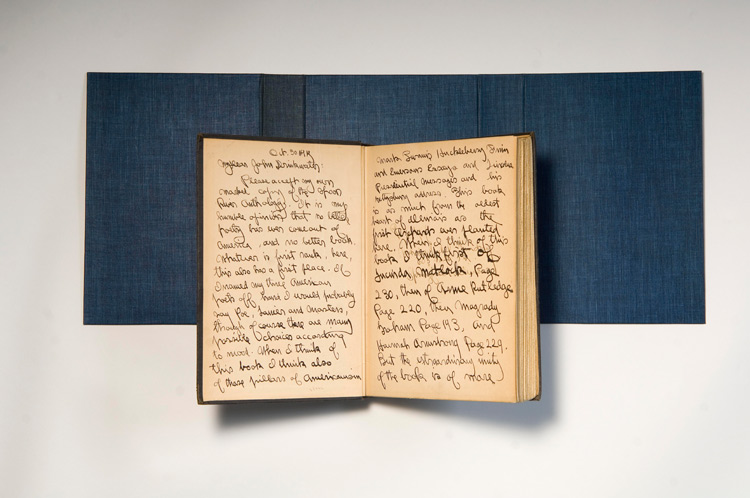 Oct. 30
My dear John Drinkwater:
Please accept my own
marked copy of the Spoon
River Anthology. It is my
humble opinion that no better
poetry has ever come out of
America, and no better book.
Whatever is first rank, here,
this also has a first place. If
I named my three American
poets off hand I would probably
say Poe, Lanier and Masters,
though of course there are many
possible choices according
to mood. When I think of
this book I think also
of those pillars of Americanism
Mark Twains Huckleberry Finn
and Emersons Essays and Lincolns
Presidential messages and his
Gettysburg address. This book
is as much from the oldest
heart of Illinois as the
first orchards ever planted
here. When I think of this
book I think first of
Lucinda Matlock, page
230, then of Anne Rutledge
Page 220, then Magrady
Graham Page 193, and
Hannah Armstrong Page 229.
But the extraordinary unity
of the book is of more